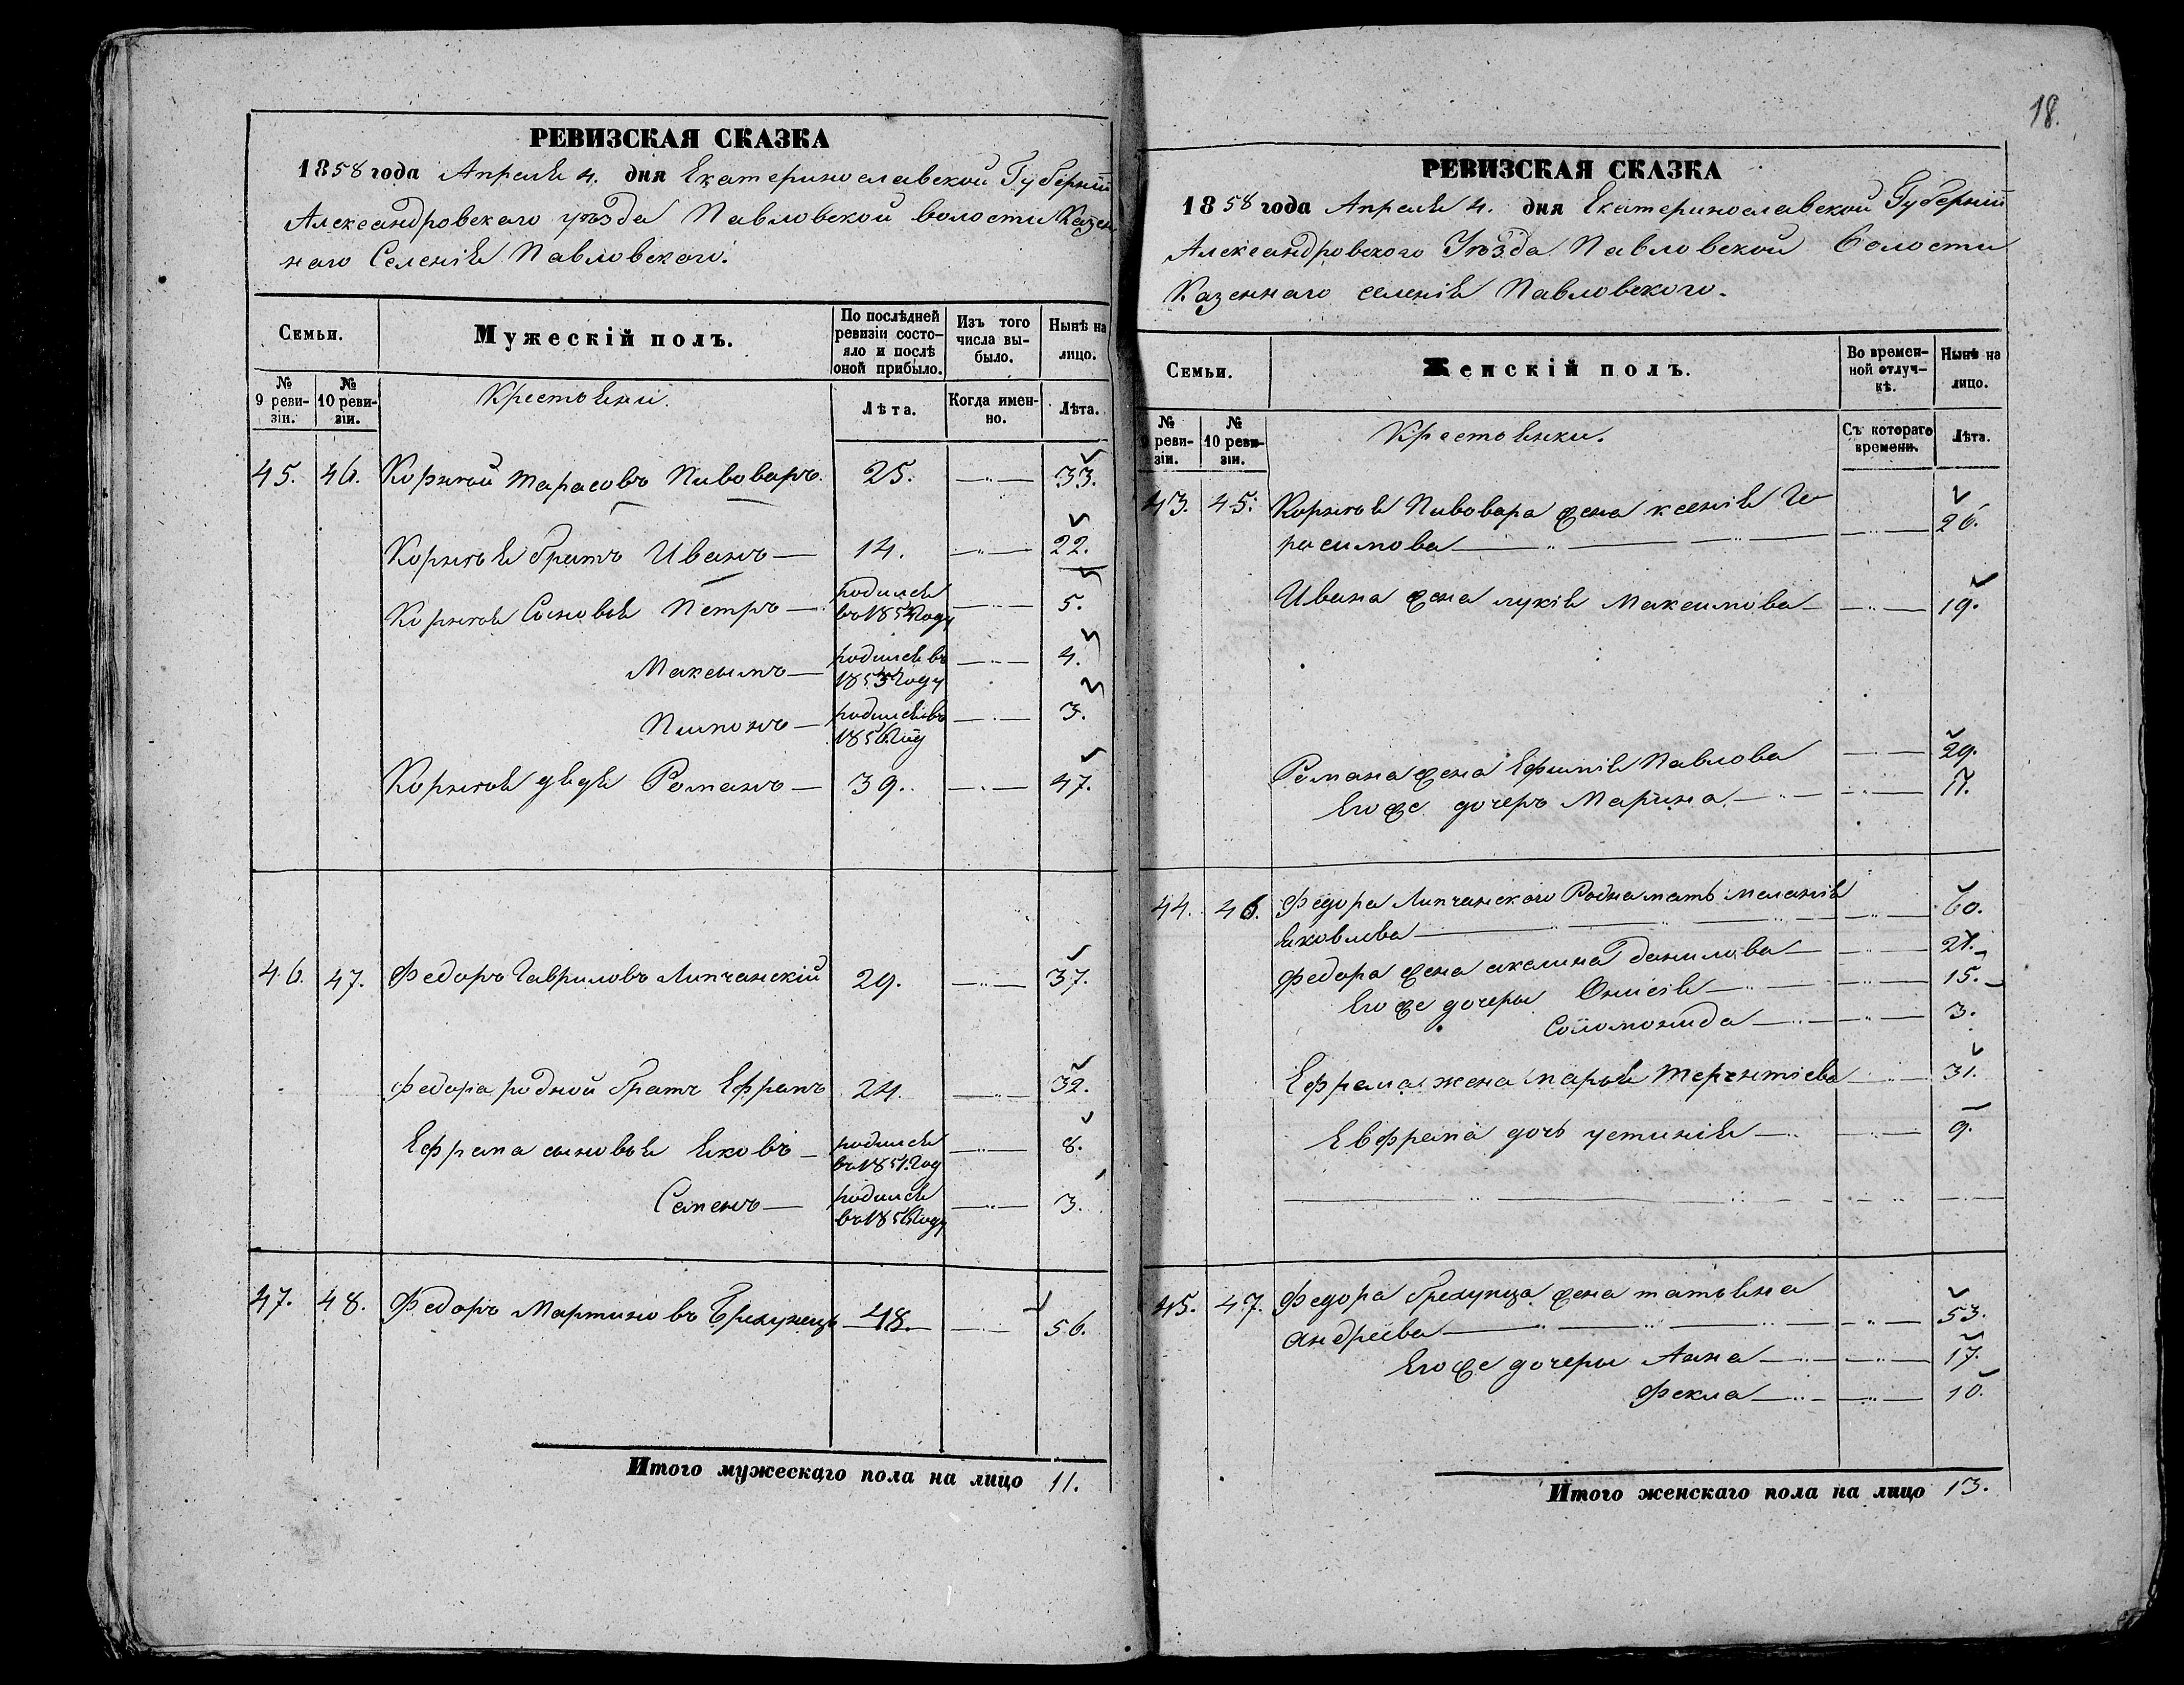 РЕВИЗСКАЯ СКАЗКА
1858 года Апреля 4. дня Екатеринославской Губерніи
Александровскаго уѣзда Павловской волости Казен
наго Селенія Павловского.
Семьи.
Мужескій полъ.
По послѣдней ревизіи состо-яло и послѣ оной прибыло.
Изъ того числа вы-было.
Нынѣ на лицо.
№ 9 реви-зіи.
№ 10 реви-зіи.
Крестьяни.
Лѣта.
Когда имен-но.
Лѣта.
45. 46. Корнѣй Тарасовъ Пивоваръ. 25. 33.
Корнѣя братъ Иванъ 14. 22.
Корнѣя Сыновья Петръ родился въ 1854 году 5.
Максымъ родился въ 1855 году 4.
Пимонъ родился въ 1856 году 3.
Корнѣя дядя Романъ 39. 47.
46. 47. Федоръ Гавриловъ Липчанскій 29. 37.
Федора родной братъ Ефрамъ 24. 32.
Ефрама сыновья Яковъ родился въ 1851 году 8.
Семенъ родился въ 1856 году 3.
47. 48. Федоръ Мартиновъ 48. 56.
Итого мужескаго пола на лицо 11.
18.
РЕВИЗСКАЯ СКАЗКА
1858 года Апреля 4. дня Екатеринославской Губерніи
Александровского Уѣзда Павловской Волости
Казеннаго селенія Павловского.
Семьи.
Женскій полъ.
Во времен-ной отлуч-кѣ.
Нынѣ на лицо.
№ 9 реви-зіи.
№ 10 реви-зіи.
Крестьянки.
Съ котораго времени.
Лѣта.
43. 45. Корнѣя Пивовара жена ксенія Ге
расимова 26.
Ивана жена лукія Максимова 19.
Романа жена Ефимія Павлова 29.
Его же дочеръ Марина 11.
44. 46. Федора Липчанского Родна мать меланія
яковлева 60.
Федора жена акалина данилова
Его же дочеры Онисія 15.
Соломонида 3.
Ефрама жена марья Терентіева 31.
Евфрама дочь устинія 9.
45. 47. Федора жена татьяна
андреева 53.
Его же дочеры Анна 17.
Фекла 10.
Итого женскаго пола на лицо 13.